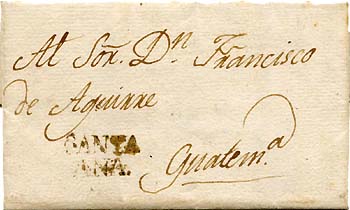 Al Sor. Dn Francisco
de Aguirre
SANTA
ANA.
Guatema